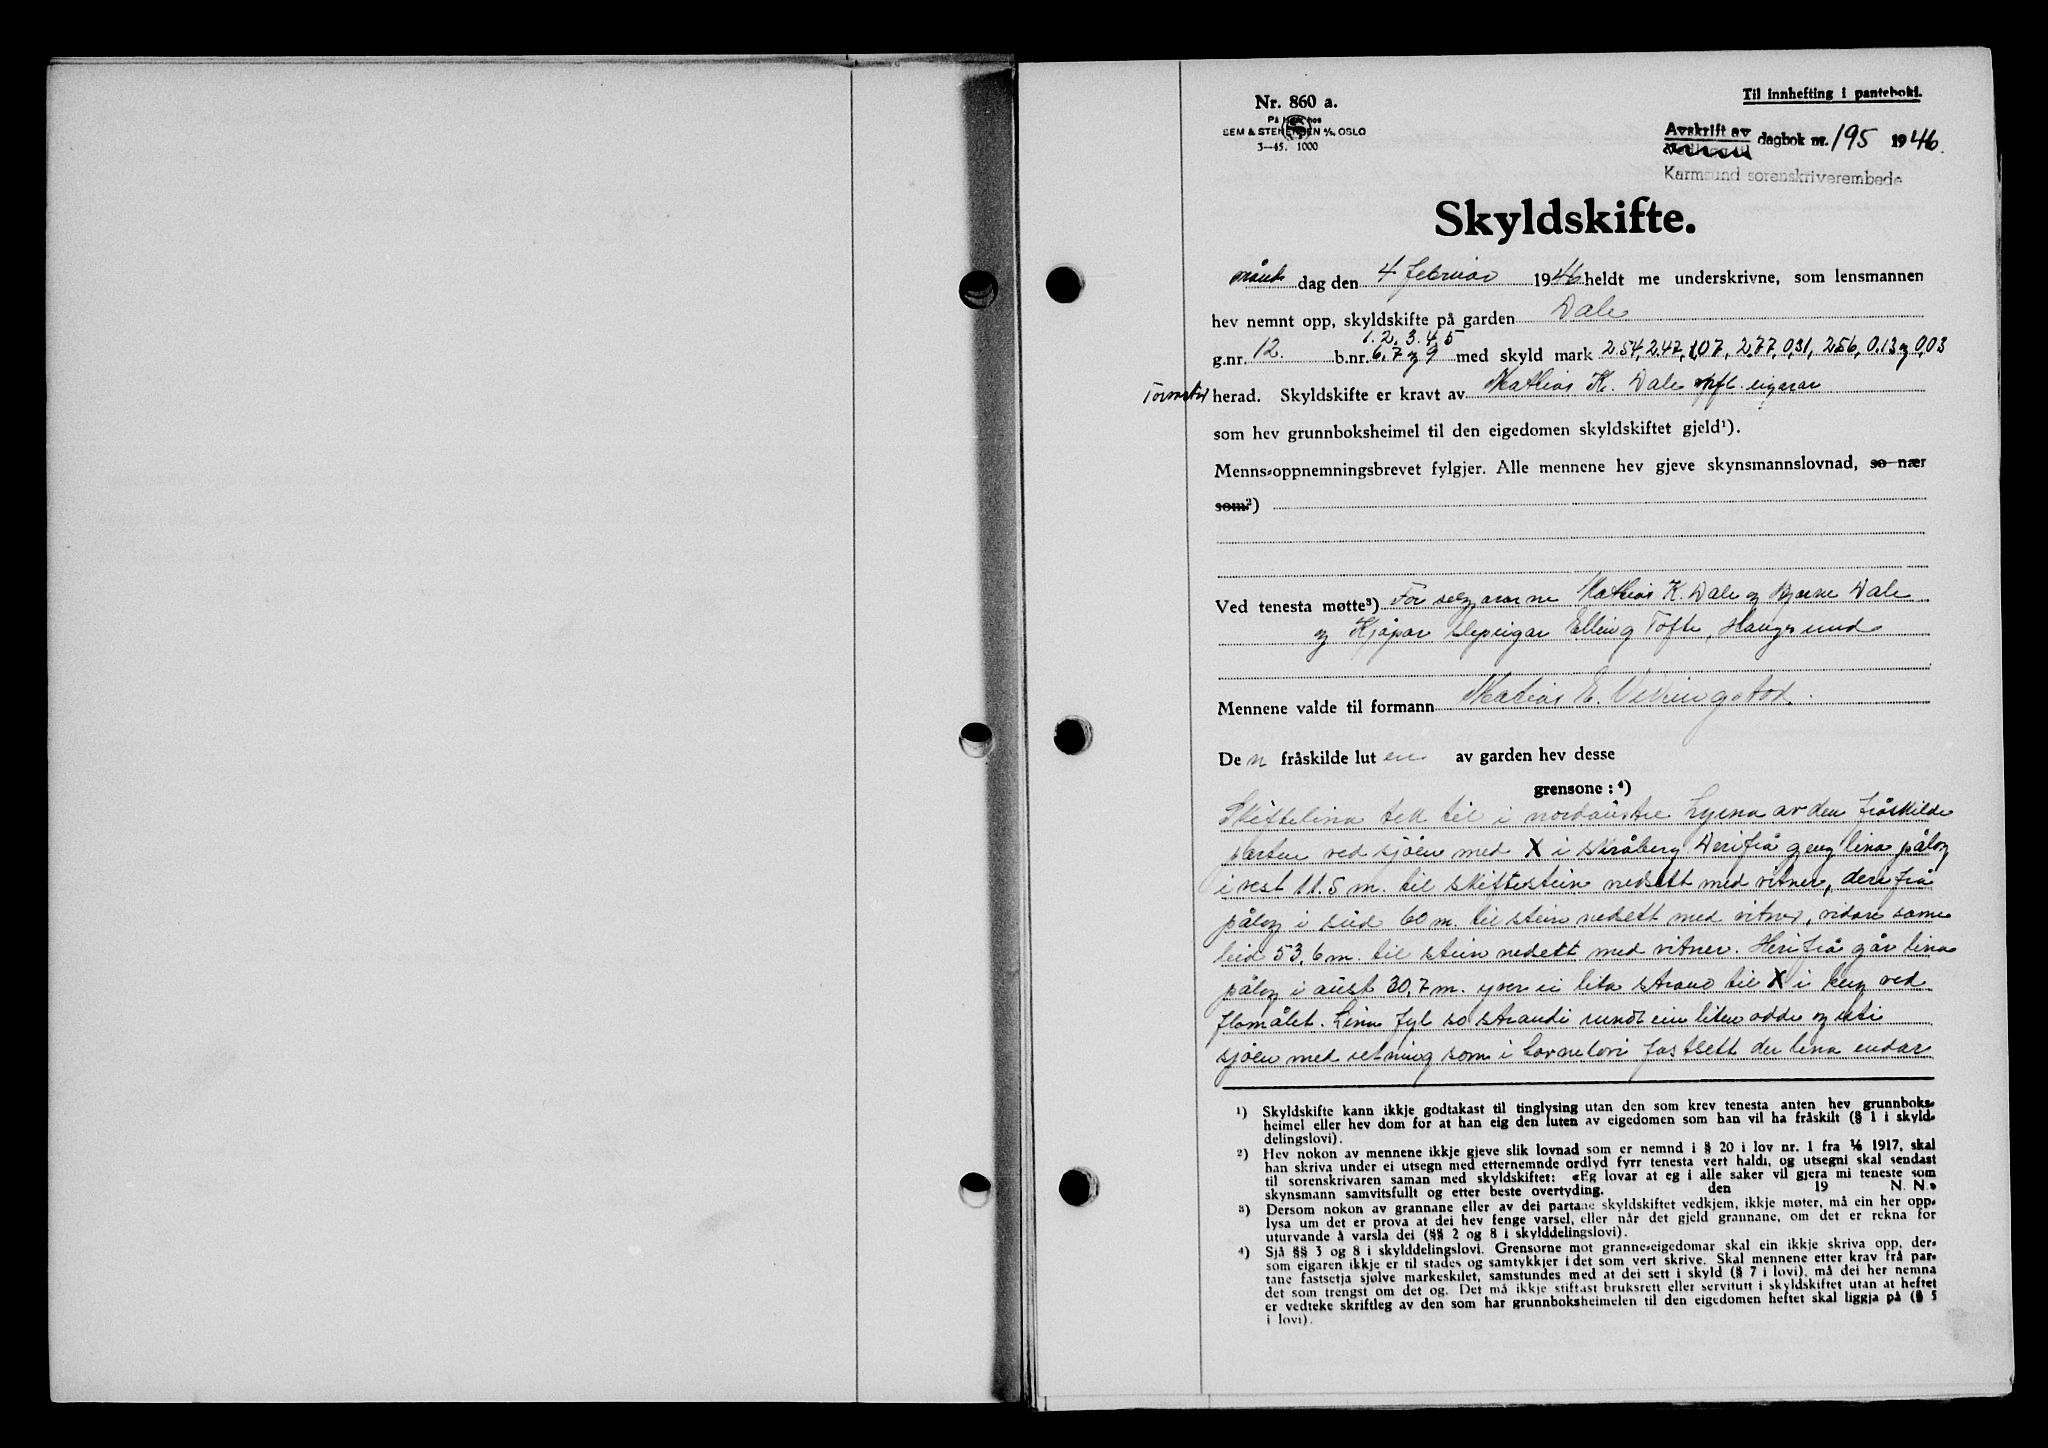 Nr. 860 a.
På lager hos
SEM & STENERSEN A/S, OSLO
3—45. 1000
Til innhefting i panteboki.
Avskrift av dagbok nr. 195 1946.
Karmsund sorenskriverembede
Skyldskifte.
månadag den 4 februar 1946 heldt me underskrivne, som lensmannen
hev nemnt opp, skyldskifte på garden Dale
g.nr. 12. b.nr. 1. 2, 3. 4, 5 6, 7 og 9 med skyld mark 2.54, 2.47, 1,07, 2,77, 0,31, 2.56, 0.13 og 0,03
Torvastad herad. Skyldskifte er kravt av Mathias K. Dale mfl. eigarar
som hev grunnboksheimel til den eigedomen skyldskiftet gjeld¹).
Menns-oppnemningsbrevet fylgjer. Alle mennene hev gjeve skynsmannslovnad, so nær
som²)
Ved tenesta møtte³) For seljararne Mathias K. Dale og Bjarne Dale
og Kjøpar slipeigar Elling Tofte, Haugesund
Mennene valde til formann Matias E. Vikingstad.
Den fråskilde luten av garden hev desse
grensone: ⁴)
Skiftelina tek til i nordaustre hyrna av den fråskilde
parten ved sjøen med X i skråberg. Derifrå geng lina pålag
i vest 11.5 m. til skiftestein nedsett med vitner, derifrå
pålag i sud 60 m. til stein nedsett med vitner, vidare same
leid 53,6 m. til stein nedsett med vitner. Herifrå går lina
pålag i aust 30,7 m. yver ei lita strand til X i berg ved
flomålet. Lina fyl so strandi rundt ein liten odde og uti
sjøen med retning som i lovne fastsett der lina endar
¹) Skyldskifte kann ikkje godtakast til tinglysing utan den som krev tenesta anten hev grunnboks-
heimel eller hev dom for at han eig den luten av eigedomen som han vil ha fråskilt (§ 1 i skyld-
delingslovi).
²) Hev nokon av mennene ikkje gjeve slik lovnad som er nemnd i § 20 i lov nr. 1 fra 1/6 1917, skal
han skriva under ei utsegn med etternemnde ordlyd fyrr tenesta vert haldi, og utsegni skal sendast
til sorenskrivaren saman med skyldskiftet: «Eg lovar at eg i alle saker vil gjera mi teneste som
skynsmann samvitsfullt og etter beste overtyding. den 19 N. N.»
³) Dersom nokon av grannane eller av dei partane skyldskiftet vedkjem, ikkje møter, må ein her opp-
lysa um det er prova at dei hev fenge varsel, eller når det gjeld grannane, om det er rekna for
uturvande å varsla dei (§§ 2 og 8 i skylddelingslovi).
⁴) Sjå §§ 3 og 8 i skylddelingslovi. Grensorne mot granne-eigedomar skal ein ikkje skriva opp, der-
som eigaren ikkje er til stades og samtykkjer i det som vert skrive. Skal mennene etter krav frå par-
tane fastsetja sjølve markeskilet, samstundes med at dei sett i skyld (§ 7 i lovi), må dei her nemna
det som trengst om det og. Det må ikkje stiftast bruksrett eller servitutt i skyldskiftet utan at heftet
er vedteke skriftleg av den som har grunnboksheimelen til den eigedomen heftet skal liggja på (§ 5
i lovi).